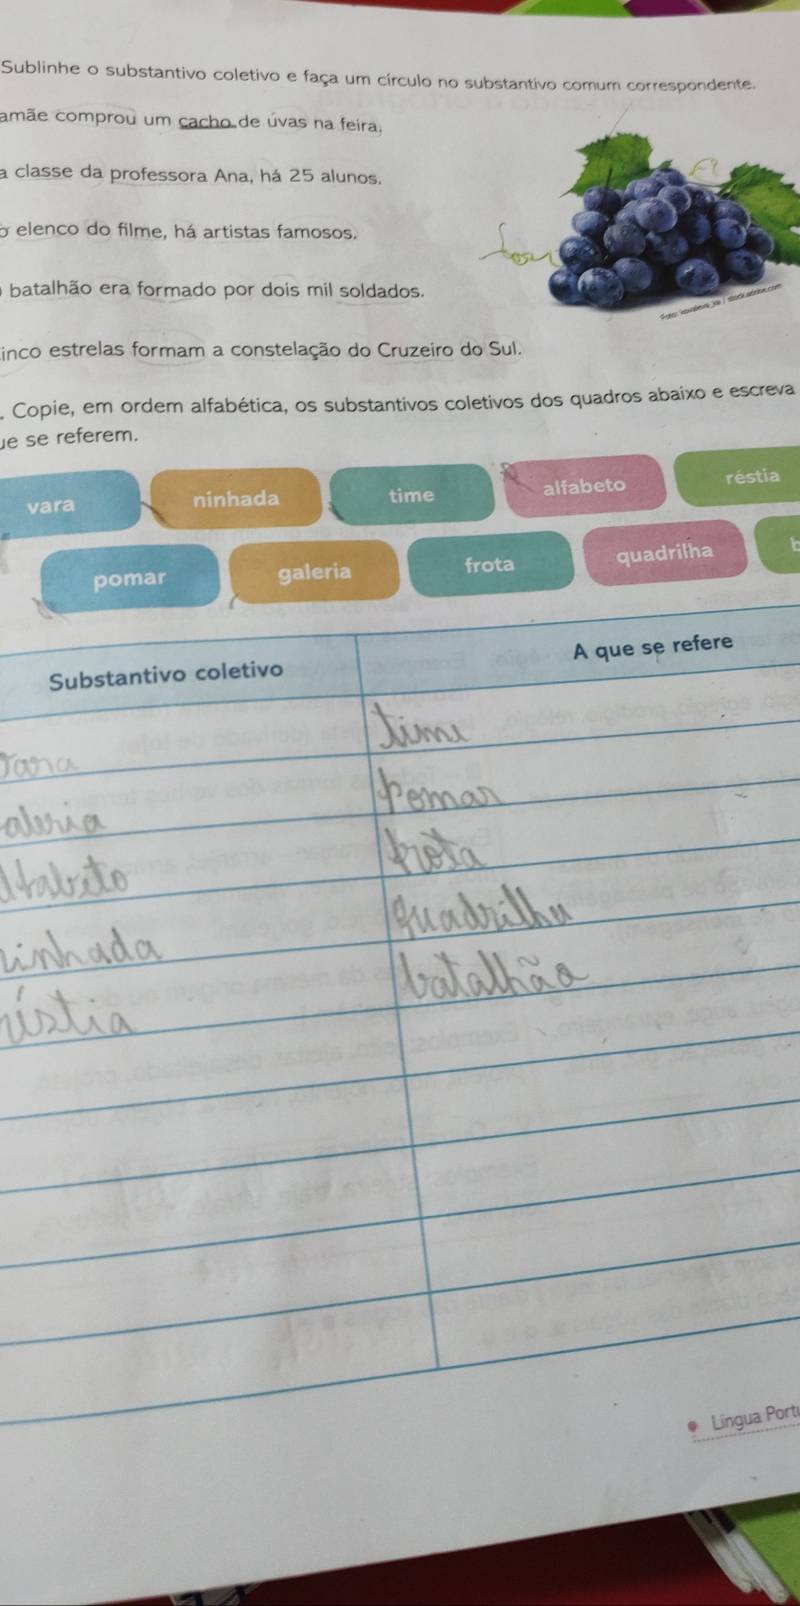 Sublinhe o substantivo coletivo e faça um círculo no substantivo comum correspondente.
amãe comprou um cacho de uvas na feira,
a classe da professora Ana, há 25 alunos.
o elenco do filme, há artistas famosos.
batalhão era formado por dois mil soldados.
inco estrelas formam a constelação do Cruzeiro do Sul.
. Copie, em ordem alfabética, os substantivos coletivos dos quadros abaixo e escreva
ue se referem.
vara ninhada time alfabeto réstia
pomar galeria frota quadrilha b
Substantivo coletivo A que se refere
vara time
aleria Pomar
alfabeto frota
ninhada quadrilha
réstia batalhão
Língua Port